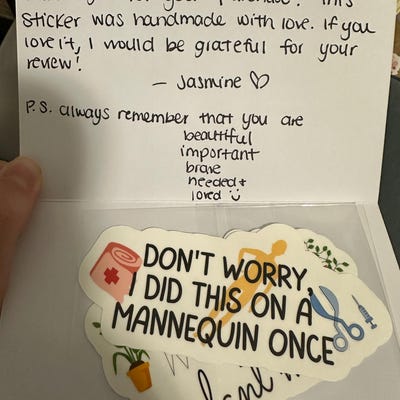 for your purchase! This
sticker was handmade with love. If you
love it, I would be grateful for your
review!
– Jasmine ♡
P.S. always remember that you are
beautiful
important
brave
needed +
loved
DON'T WORRY,
I DID THIS ON A
MANNEQUIN ONCE